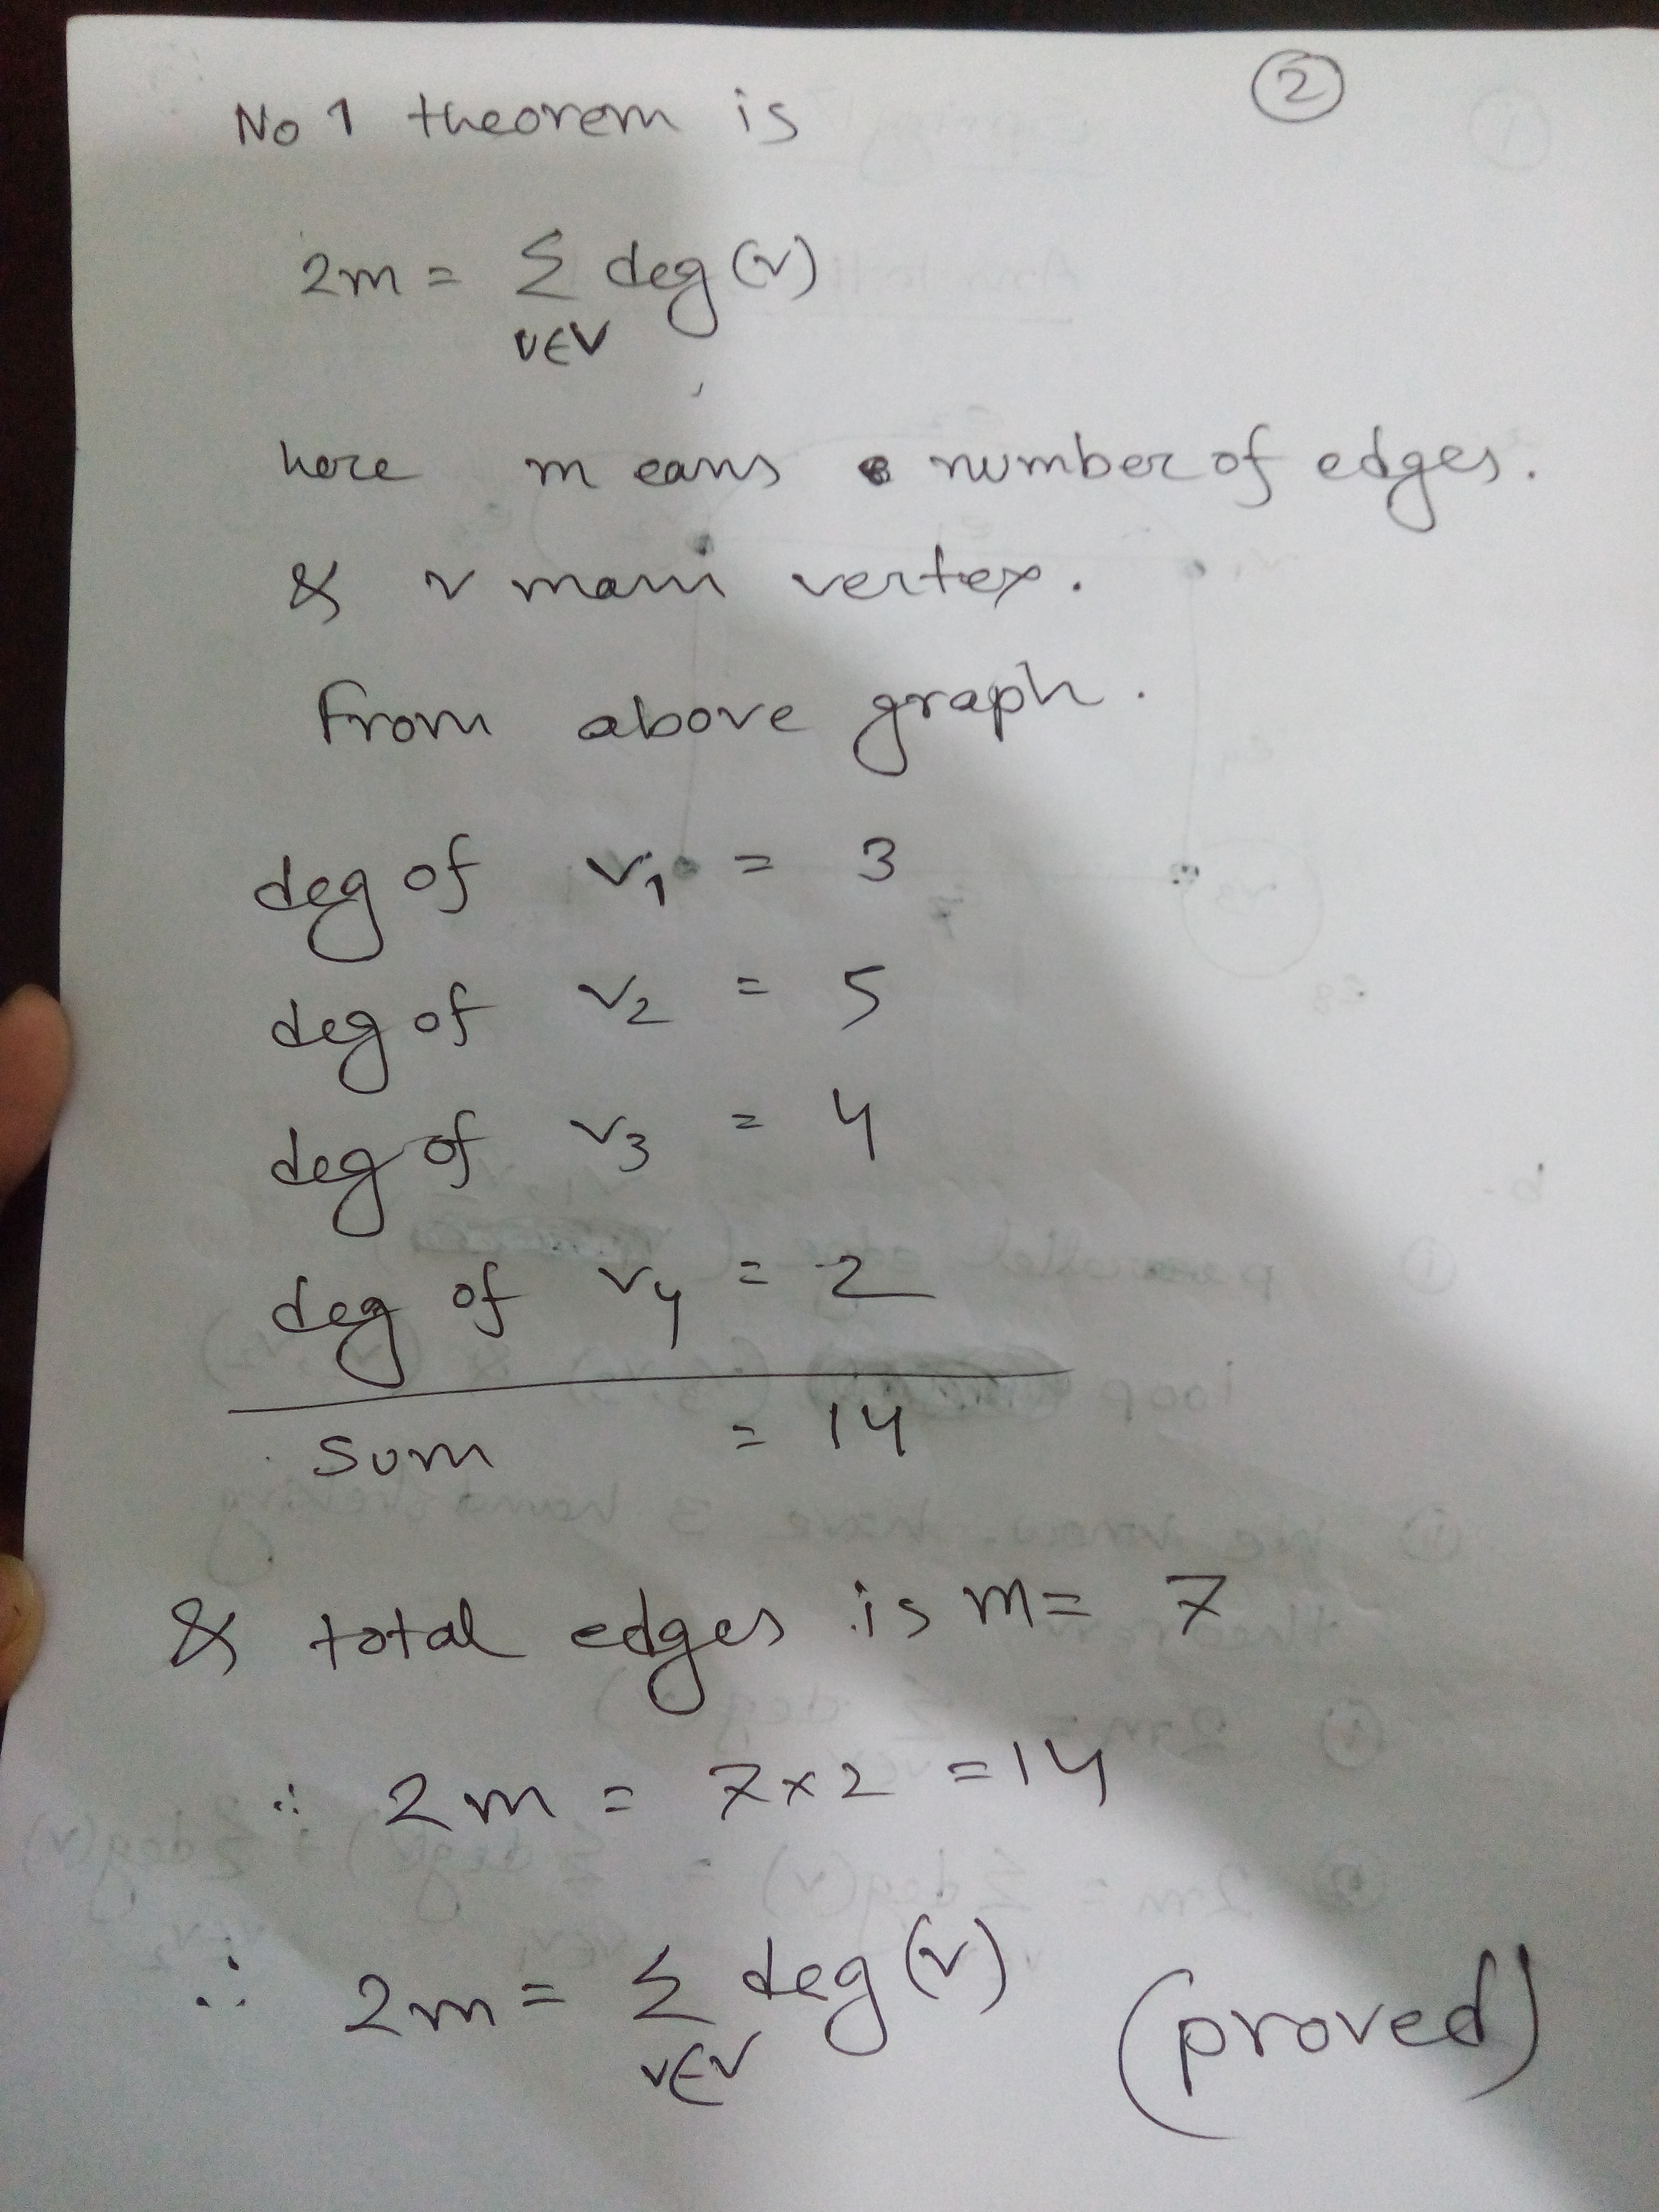 ②
No 1 theorem is
2m = Σ deg (v)
v∈V
here m eans number of edges.
& v mam vertex.
from above graph.
deg of v₁ = 3
deg of v₂ = 5
deg of v₃ = 4
deg of v₄ = 2
sum = 14
& total edges is m = 7
∴ 2m = 7×2 = 14
∴ 2m = Σ deg (v) (proved)
v∈V